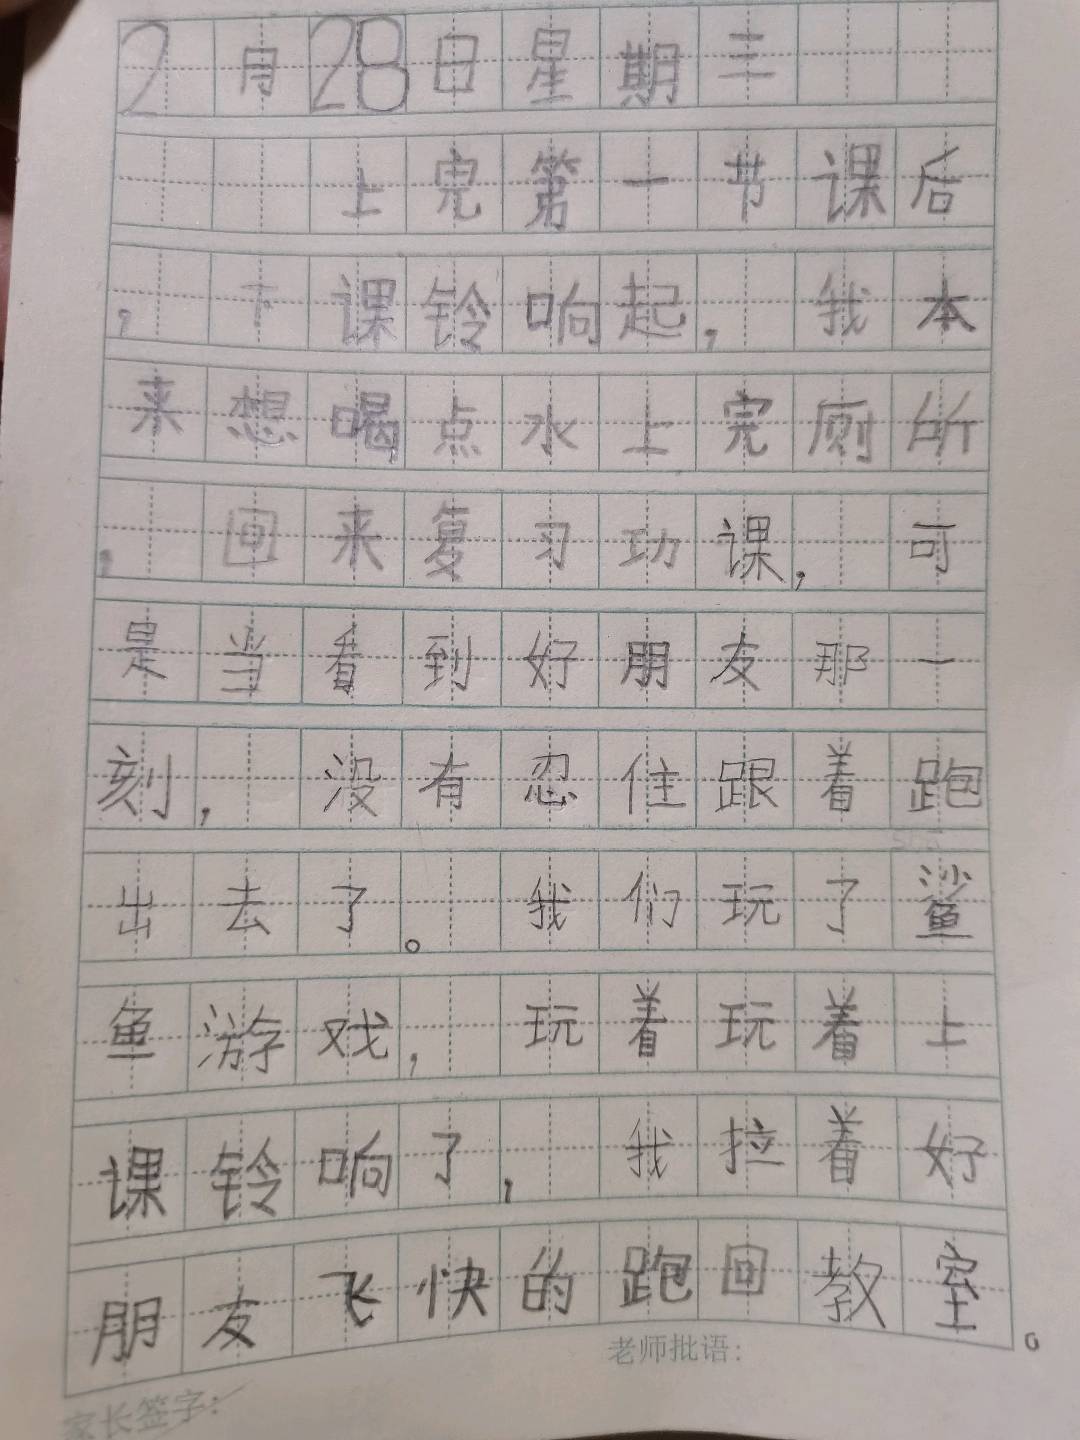 2月28日星期三
上完第一节课后
，下课铃响起，我本
来想喝点水上完厕所
，回来复习功课，可
是当看到好朋友那一
刻，没有忍住跟着跑
出去了。我们玩了鲨
鱼游戏，玩着玩着上
课铃响了，我拉着好
朋友飞快的跑回教室。
老师批语：
家长签字：